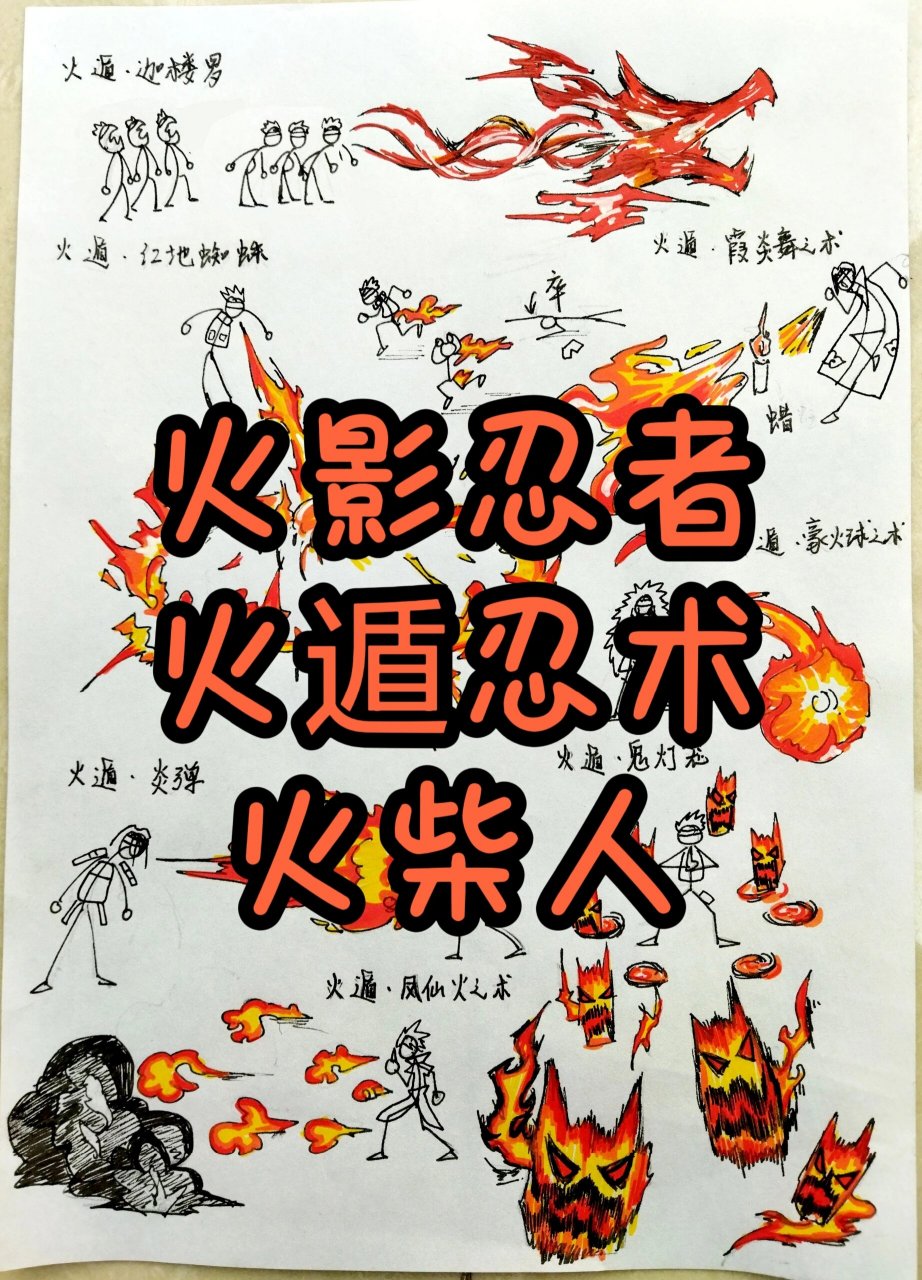 火遁·迦楼罗
火遁·红地蜘蛛
火遁·霞炎舞之术
卒
蜡
火影忍者
遁·豪火球之术
火遁忍术
火遁·鬼灯笼
火遁·炎弹
火柴人
火遁·凤仙火之术